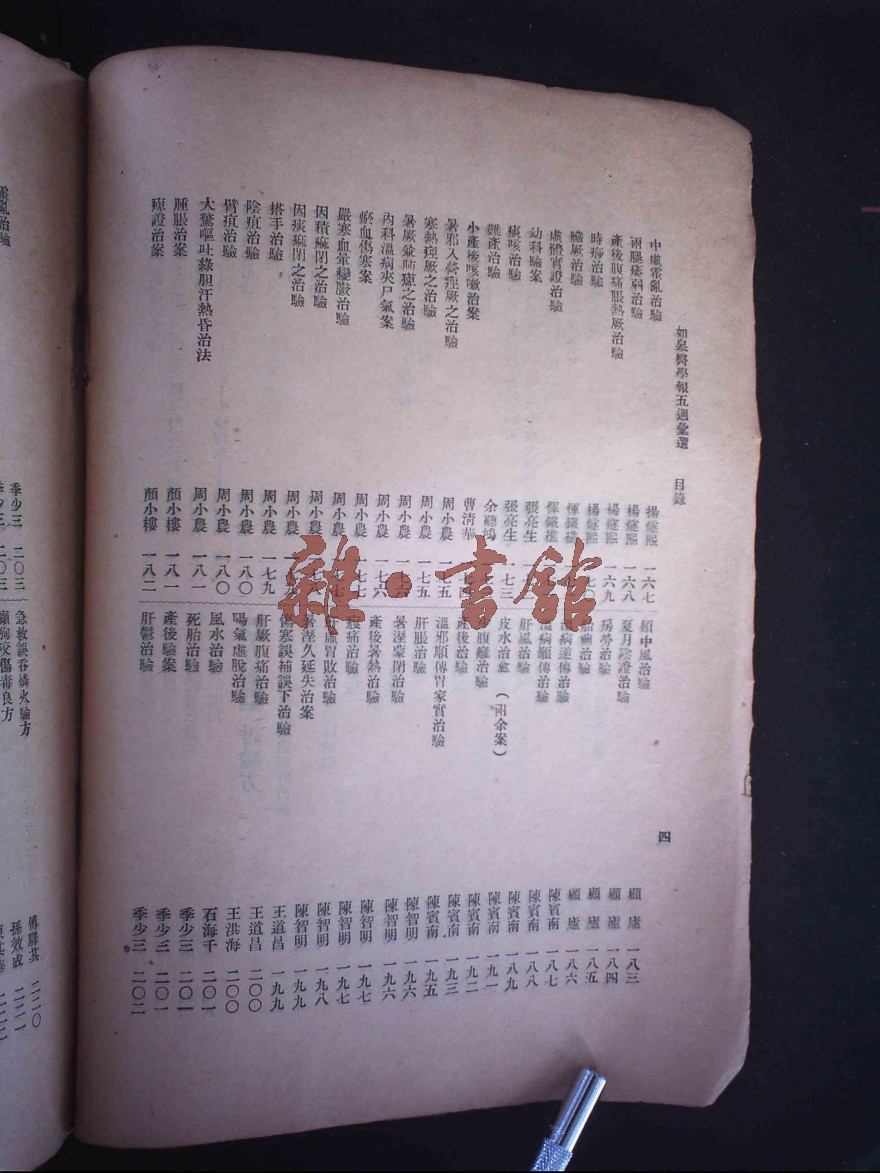 如皋醫學報五週彙選　目錄
四
中虛霍亂治驗　楊燧熙　一六七
兩腿痿弱治驗　楊燧熙　一六八
產後腹痛脹熱厥治驗　楊燧熙　一六九
時痧治驗　楊燧熙
臟厥治驗　惲鐵樵
虛體實證治驗　惲鐵樵
幼科驗案　張亮生
痰咳治驗　張亮生　一七三
難產治驗　余聽鴻
小產後咳嗽治案　曹清華　一七四
暑邪入營痙厥之治驗　周小農　一七五
寒熱痙厥之治驗　周小農　一七五
暑厥兼肺癰之治驗　周小農　一七六
內科溫病夾尸氣案　周小農　一七六
瘀血傷寒案　周小農　一七七
嚴寒血暈變臌治驗　周小農
因積癃閉之治驗　周小農
因痰癃閉之治驗　周小農
搭手治驗　周小農　一七九
陰疽治驗　周小農　一八〇
臂疽治驗　周小農　一八〇
大驚嘔吐綠胆汗熱昏治法　周小農　一八一
腫脹治案　顏小樓　一八一
瘰證治案　顏小樓　一八二
類中風治驗　顧　廬　一八三
夏月陰證治驗　顧　廬　一八四
房勞治驗　顧　廬　一八五
治驗　顧　廬　一八六
病逆傳治驗　陳賓南　一八七
病順傳治驗　陳賓南　一八八
肝風治驗　陳賓南　一八九
皮水治愈（附余案）　陳賓南　一九一
腹難治驗　陳賓南　一九二
產後治驗　陳賓南　一九三
溫邪順傳胃家實治驗　陳賓南　一九五
肝脹治驗　陳智明　一九六
暑溼蒙閉治驗　陳智明　一九六
產後暑熱治驗　陳智明　一九七
痛治驗　陳智明　一九七
肝虛胃敗治驗　陳智明　一九八
暑溼久延失治案　陳智明　一九九
傷寒誤補誤下治驗　王道昌　一九九
肝厥腹痛治驗　王道昌　二〇〇
陽氣虛脫治驗　王洪海　二〇〇
風水治驗　石海千　二〇一
死胎治驗　季少三　二〇一
產後驗案　季少三　二〇二
肝鬱治驗　季少三　二〇三
霍亂治驗　季少三　二〇三
急救誤吞燐火驗方　傅驛其　二二〇
癲狗咬傷毒良方　孫效成　二二一
雜·書舘